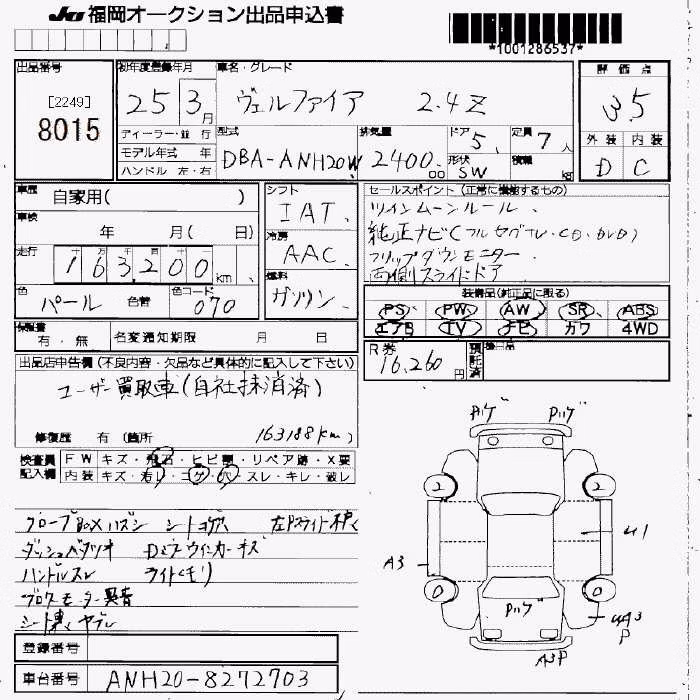 JU 福岡オークション出品申込書
*1001286537*
出品番号
[2249]
8015
初年度登録年月
25 3月
車名・グレード
ヴェルファイア 2.4Z
評価点
3.5
外装 内装
D C
ディーラー・並行
モデル年式 年
ハンドル 左・右
型式
DBA-ANH20W
排気量
2400.
ドア
5.
形状
SW
定員
7人
積載
kg
車歴
自家用( )
車検
年 月( 日)
走行
十万 万 千 百 十 一
163,200km
色
パール 色替
色コード
070
シフト
IAT.
冷房
AAC.
燃料
ガソリン
セールスポイント(正常に機能するもの)
ツインムーンルール、
純正ナビ(フルセグTV、CD、DVD)
フリップダウンモニター
両側スライドドア
装備品(純正品に限る)
PS PW AW SR ABS
エアB TV ナビ カワ 4WD
保証書
有・無
名変通知期限 月 日
R券
16,260円
預託済
出品店申告欄(不良内容・欠品など具体的に記入して下さい)
ユーザー買取車(自社抹消済)
163188km)
修復歴 有(箇所
検査員 FW キズ・飛石・ヒビ割・リペア跡・X要
記入欄 内装 キズ・汚レ・コゲ・穴・スレ・キレ・破レ
グローブBOXハズシ シートヨゴレ 左Pスライド
ダッシュベタツキ Dミラーウインカーキズ
ハンドルスレ ライトくもり
ブロアモーター異音
シート
登録番号
車台番号 ANH20-8272703
Pハゲ Pハゲ
2 2
U1
A3
0 0
Pハゲ
UA3
P
A3P